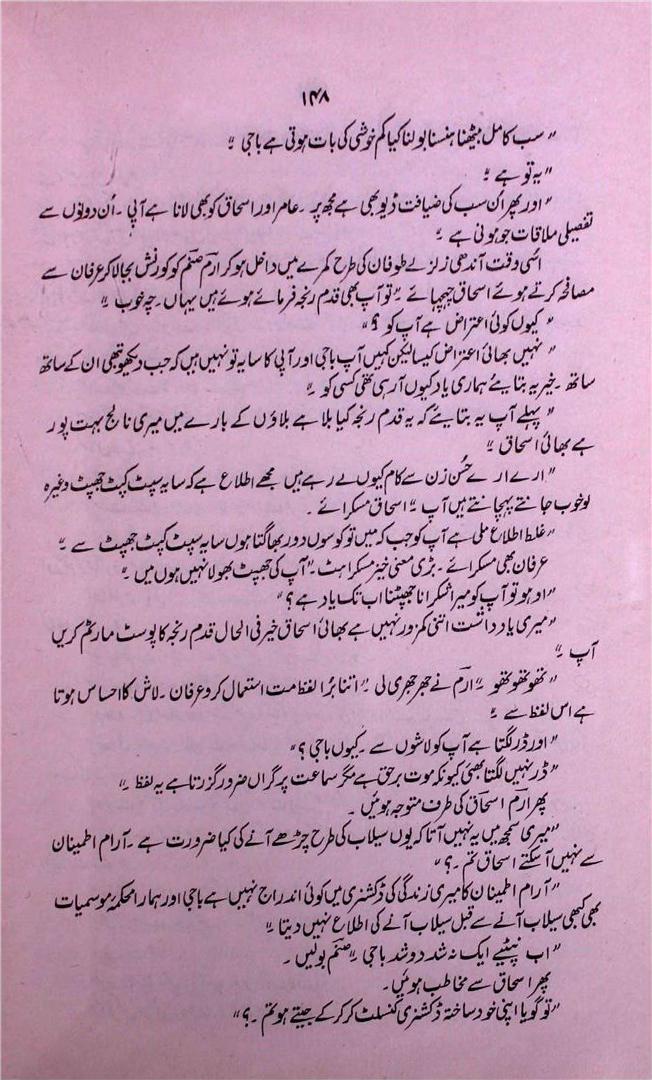 ۱۴۸
" سب کا مل بیٹھنا ہنسنا بولنا کیا کم خوشی کی بات ہوتی ہے باجی ۔"
" یہ تو ہے ۔"
" اور پھر ان سب کی ضیافت ڈیو بھی ہے مجھ پر ۔ عامر اور اسحاق کو بھی لانا ہے آپی ۔ اُن دونوں سے
تفصیلی ملاقات جو ہونی ہے ۔"
اسُی وقت آندھی زلزلے طوفان کی طرح کمرے میں داخل ہو کر ارم صنم کو کورنش بجا لا کر عرفان سے
مصافحہ کرتے ہوئے اسحاق چہچہائے ۔" تو آپ بھی قدم رنجہ فرمائے ہوئے ہیں یہاں ۔ چہ خوب ۔"
" کیوں کوئی اعتراض ہے آپ کو ؟"
" نہیں بھائی اعتراض کیسا لیکن کہیں آپ باجی اور آپی کا سایہ تو نہیں ہیں کہ جب دیکھو تبھی ان کے ساتھ
ساتھ ۔ خیر یہ بتایئے ہماری یاد کیوں آرہی تھی کسی کو ۔"
" پہلے آپ یہ بتایئے کہ یہ قدم رنجہ کیا بلا ہے بلاؤں کے بارے میں میری نالج بہت پور
ہے بھائی اسحاق ۔"
" ارے ارے حُسن زن سے کام کیوں لے رہے ہیں مجھے اطلاع ہے کہ سایہ سپٹ کپٹ جھپٹ وغیرہ
کو خوب جانتے پہچانتے ہیں آپ ۔" اسحاق مسکرائے ۔
" غلط اطلاع ملی ہے آپ کو جب کہ میں تو کوسوں دور بھاگتا ہوں سایہ سپٹ کپٹ جھپٹ سے ۔"
عرفان بھی مسکرائے ۔ بڑی معنی خیز مسکراہٹ ۔" آپ کی جھپٹ بھولا نہیں ہوں میں ۔"
" اوہو تو آپ کو میرا شکرانا جھپٹنا اب تک یاد ہے ؟"
" میری یادداشت اتنی کمزور نہیں ہے بھائی اسحاق خیر فی الحال قدم رنجہ کا پوسٹ مارٹم کریں
آپ ۔"
" تھو تھو تھو ۔" ارم نے جھرجھری لی ۔" اتنا بُرا لفظ مت استعمال کرو عرفان ۔ لاش کا احساس ہوتا
ہے اس لفظ سے ۔"
" اور ڈر لگتا ہے آپ کو لاشوں سے ۔ کیوں باجی ؟"
" ڈر نہیں لگتا بھئی کیونکہ موت برحق ہے مگر سماعت پر گراں ضرور گزرتا ہے یہ لفظ ۔"
پھر ارم اسحاق کی طرف متوجہ ہوئیں ۔
" میری سمجھ میں یہ نہیں آتا کہ یوں سیلاب کی طرح چڑھے آنے کی کیا ضرورت ہے ۔ آرام اطمینان
سے نہیں آسکتے اسحاق تم ۔؟"
" آرام اطمینان کا میری زندگی کی ڈکشنری میں کوئی اندراج نہیں ہے باجی اور ہمارا محکمۂ موسمیات
بھی کبھی سیلاب آنے سے قبل سیلاب آنے کی اطلاع نہیں دیتا ۔"
" اب نپٹیے ایک نہ شد دو شد باجی ۔" صنم بولیں ۔
پھر اسحاق سے مخاطب ہوئیں ۔
" تو گویا اپنی خود ساختہ ڈکشنری کنسلٹ کر کر کے جیتے ہو تم ۔؟"